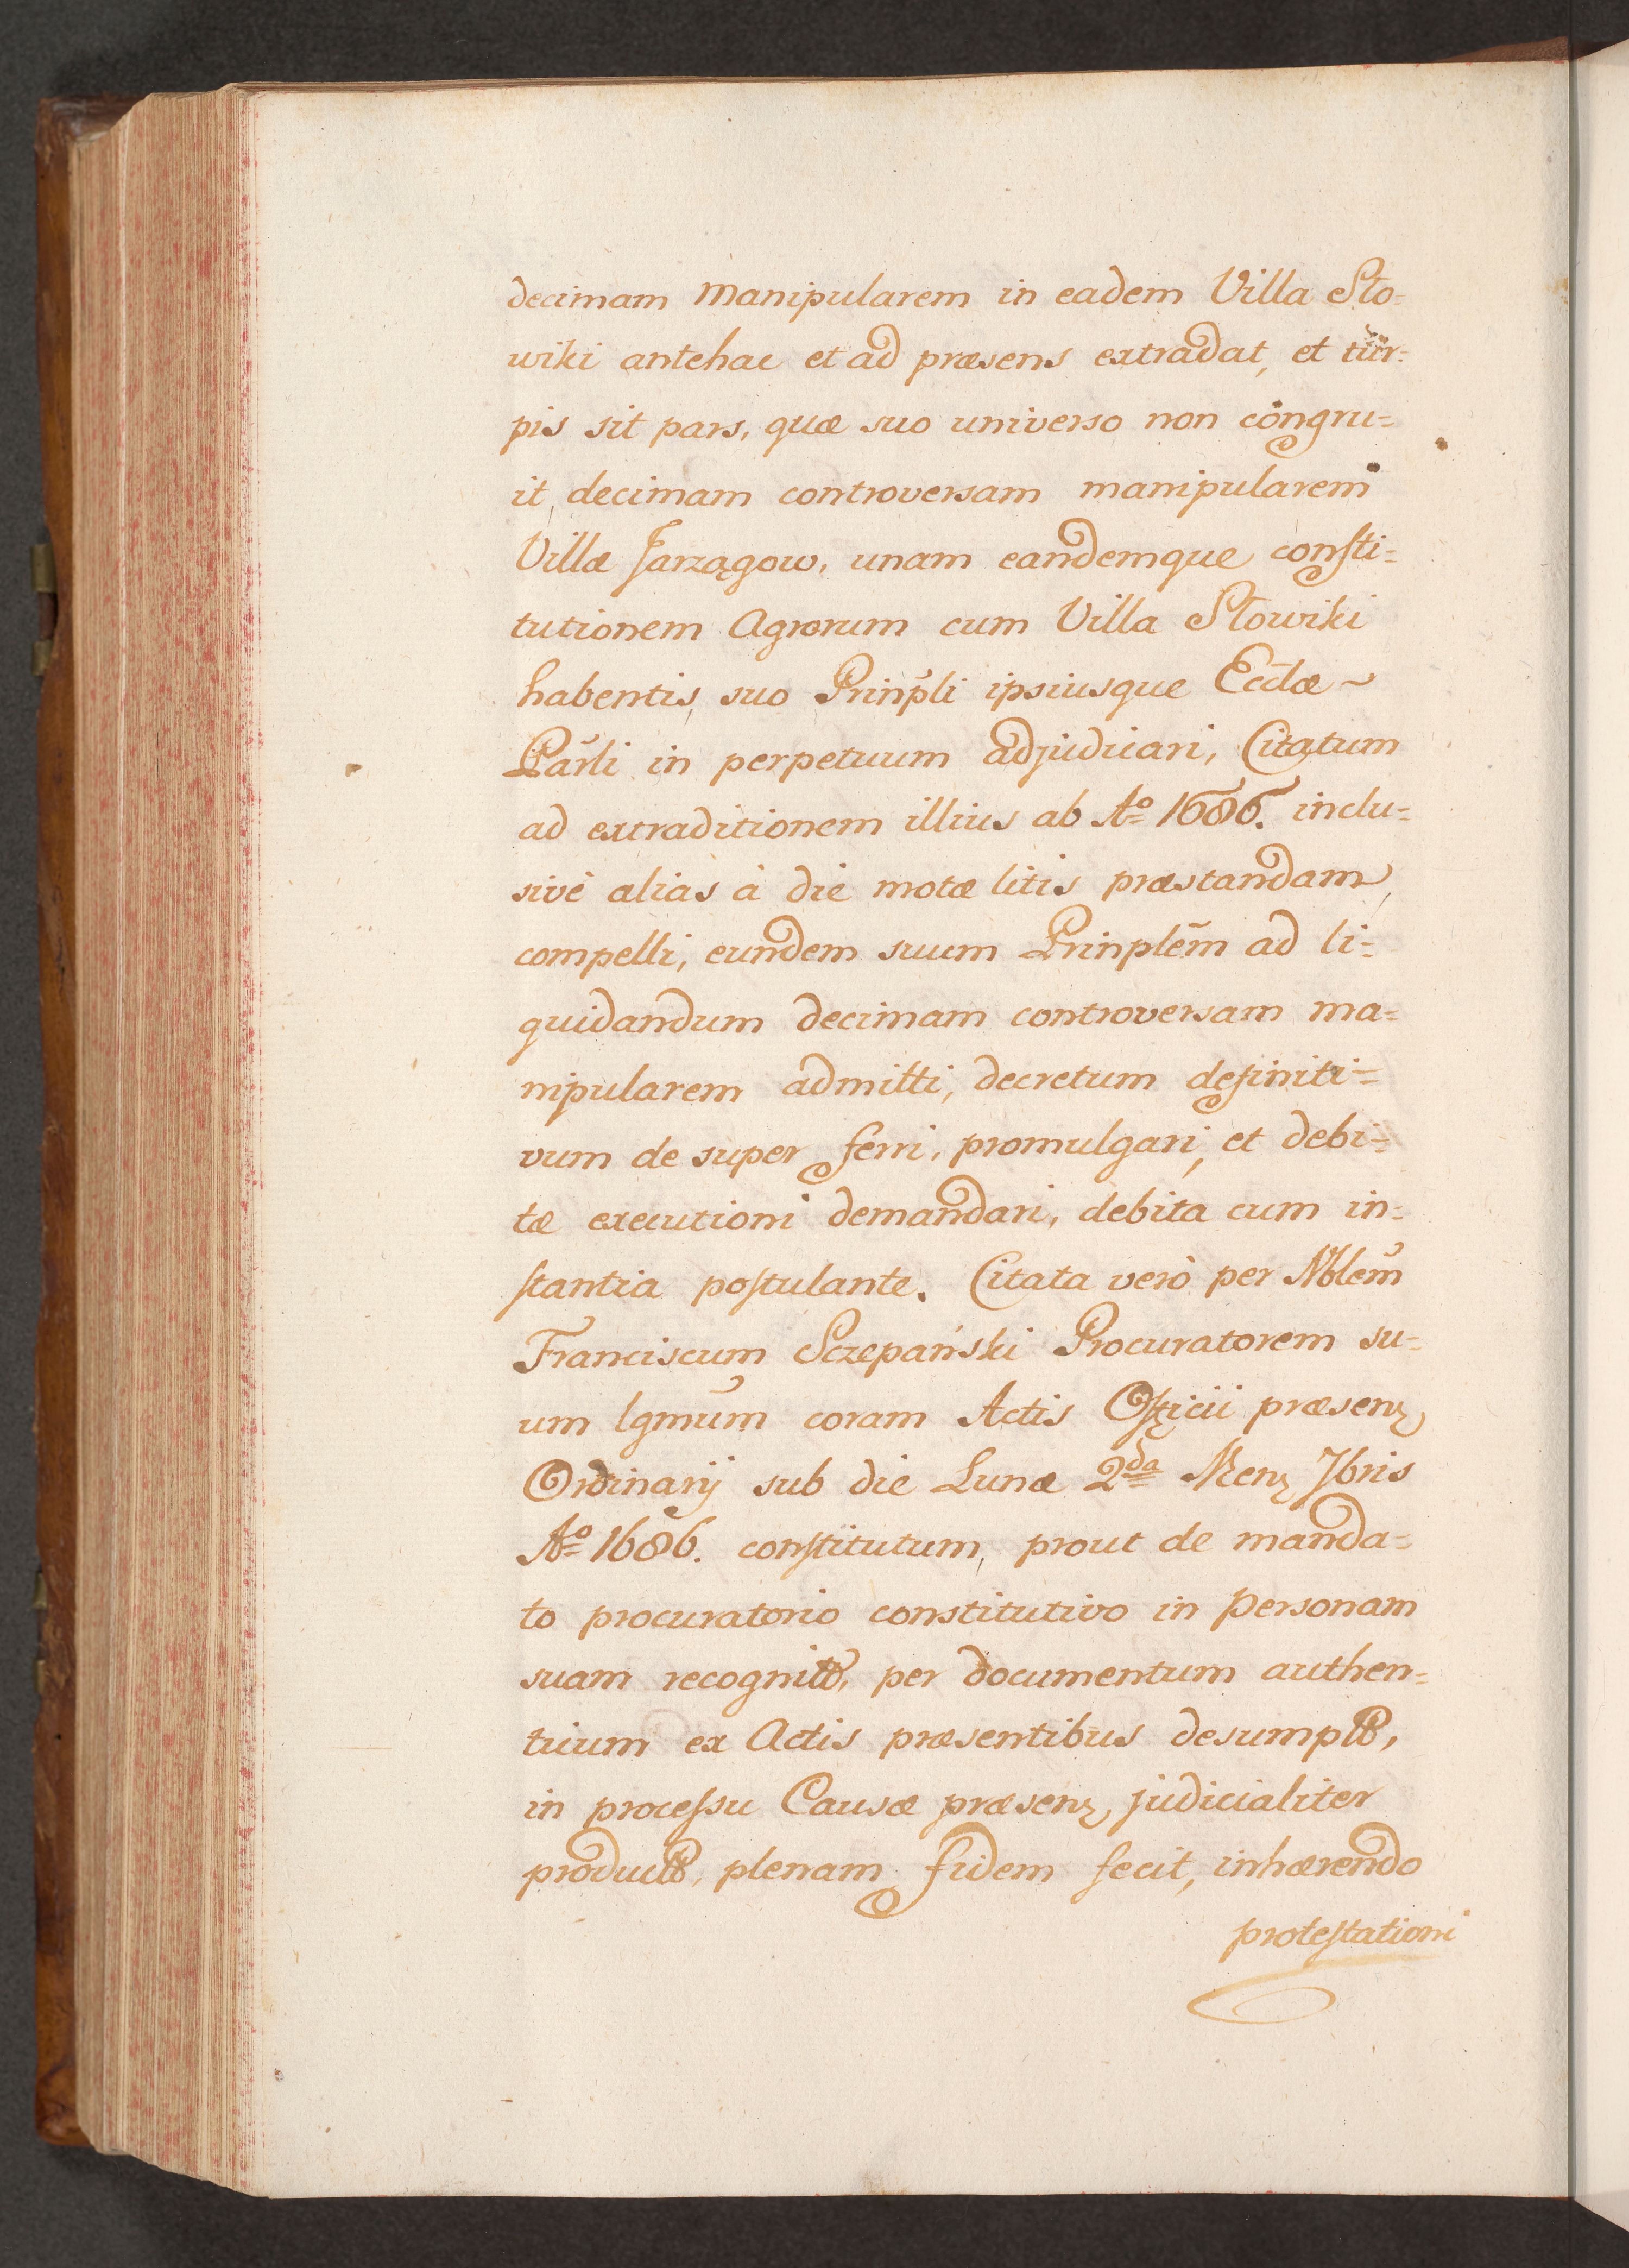 decimam manipularem in eadem Villa Sło-
wiki antehac et ad præsens extradat, et tur-
pis sit pars, quæ suo universo non congru-
it, decimam controversam manipularem
Villæ Jarzągow, unam eandemque consti-
tutionem Agrorum cum Villa Słowiki
habentis, suo Prinpli ipsiusque Eccläe
Parli in perpetuum adjudicari, Citatum
ad extraditionem illius ab Aº 1686. inclu-
sivè alias à die motæ litis præstandam,
compelli, eundem suum Prinplem̃ ad li-
quidandum decimam controversam ma-
nipularem admitti, decretum definiti-
vum de super ferri, promulgari, et debi-
tæ executioni demandari, debita cum in-
stantia postulante. Citata verò per Nblem̃
Franciscum Sczepański Procuratorem su-
um lgmum̃ coram Actis Officii præsenꝫ
Ordinarij sub die Lunæ 2da Menꝫ 7bris
Aº 1686. constitutum, prout de manda-
to procuratorio constitutivo in personam
suam recognito, per documentum authen-
ticum ex Actis præsentibus desumpto,
in processu Causæ præsenꝫ judicialiter
producto, plenam fidem fecit, inhærendo
protestationi